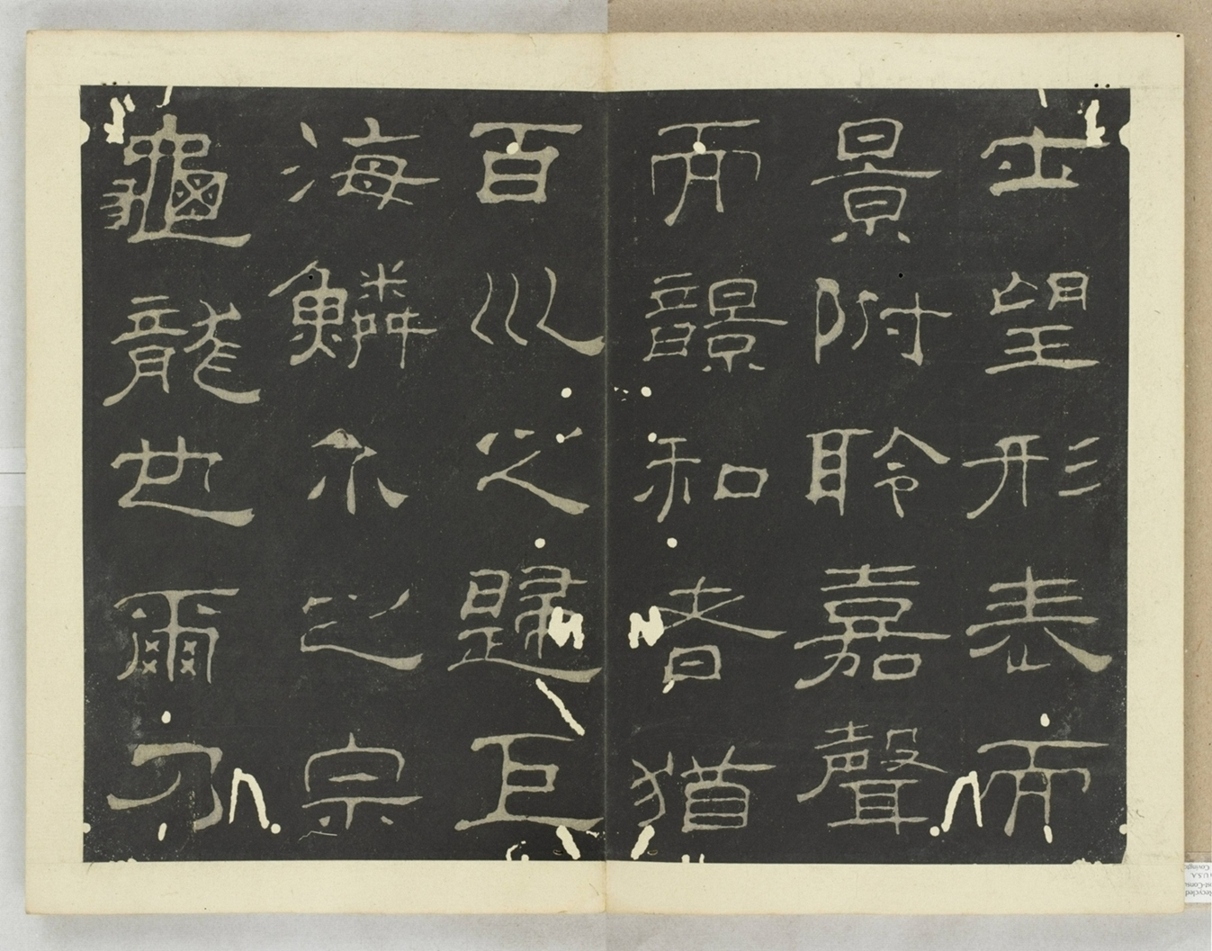 士望形表而
景附聆嘉聲
而䪫和者猶
百川之歸巨
海鱗介之宗
龜龍也爾乃